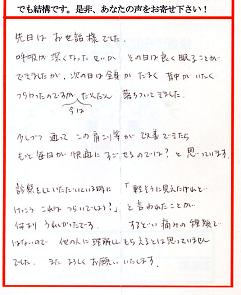 でも結構です。是非、あなたの声をお寄せ下さい!
先日は お世話様でした。
呼吸が 深くなった せいか その日は 良く 眠ることが
できましたが、次の日は 全身が だるく 背中が いたく
つらかったのですが だんだん 落ちついてきました。
今は
少しづつ 通って この 肩こり等が 改善できたら
もっと 毎日が 快適に すごせるのでは? と 思っています。
診察をしていただいている時に 「軽そうに見えたけれど
けっこう これは つらいでしょう?」 と 言われたことが
何より うれしかったです。 するどい 痛みの 経験で
はないので 他の人に 理解してもらえるとは思っていません
でした。 また よろしく お願い いたします。